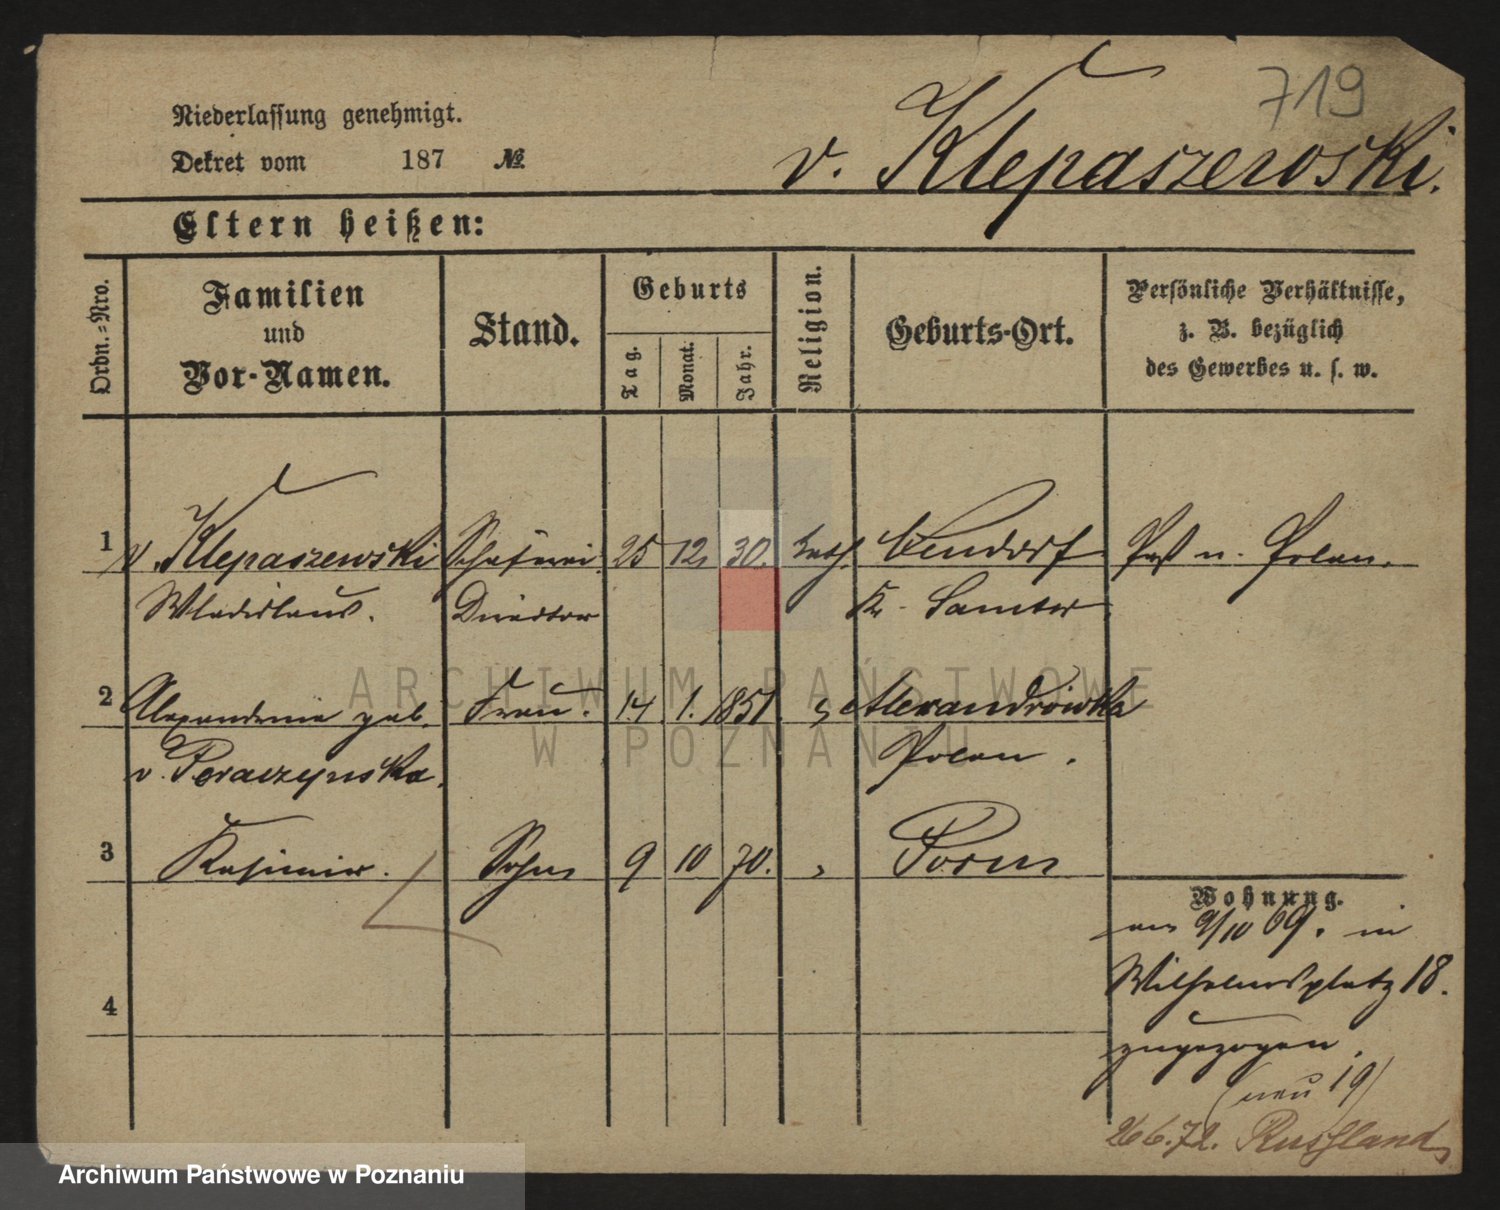 719
Niederlassung genehmigt.
Dekret vom 187 №
v. Klepaszewski.
Eltern heißen:
Ordn.-Nro.
Familien
und
Vor-Namen.
Stand.
Geburts
Tag.
Monat.
Jahr.
Religion.
Geburts-Ort.
Persönliche Verhältnisse,
z. B. bezüglich
des Gewerbes u. s. w.
1 v. Klepaszewski Schäferei 25 12 30. kath. Paß n. Polen.
Wladislaus. Director Kr. Samter
2 Alexandrine geb. Frau. 14. 1. 1851 " Alexandrówka
v. Polen.
3 Kasimir. Sohn 9 10 70. " Posen
Wohnung.
am 9/10 69. in
Wilhelmsplatz 18.
zugezogen.
(neu 19)
26 6.72. Russland
4
ARCHIWUM PAŃSTWOWE
W POZNANIU
Archiwum Państwowe w Poznaniu